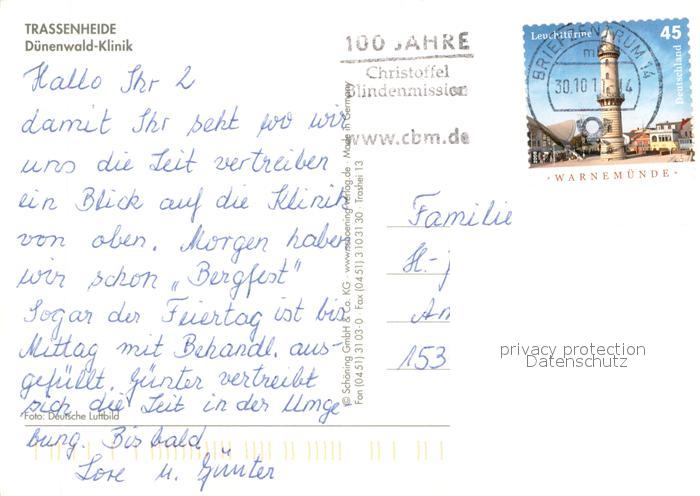 TRASSENHEIDE
Dünenwald-Klinik
Hallo Ihr 2
damit Ihr seht wo wir
uns die Zeit vertreiben
ein Blick auf die Klinik
von oben. Morgen haben
wir schon „Bergfest"
Sogar der Feiertag ist bis
Mittag mit Behandl. aus-
gefüllt. Günter vertreibt
sich die Zeit in der Umge-
bung. Bis bald
Lore u. Günter
Foto: Deutsche Luftbild
© Schöning GmbH & Co. KG · www.schoening-verlag.de · Made in Germany
Fon (04 51) 31 03-0 · Fax (04 51) 3 10 31 30 · Trashei 13
100 JAHRE
Christoffel
Blindenmission
www.cbm.de
BRIEFZENTRUM 14
30.10.1
14
Leuchttürme
45
Deutschland
WARNEMÜNDE
Familie
H.-
153
privacy protection
Datenschutz